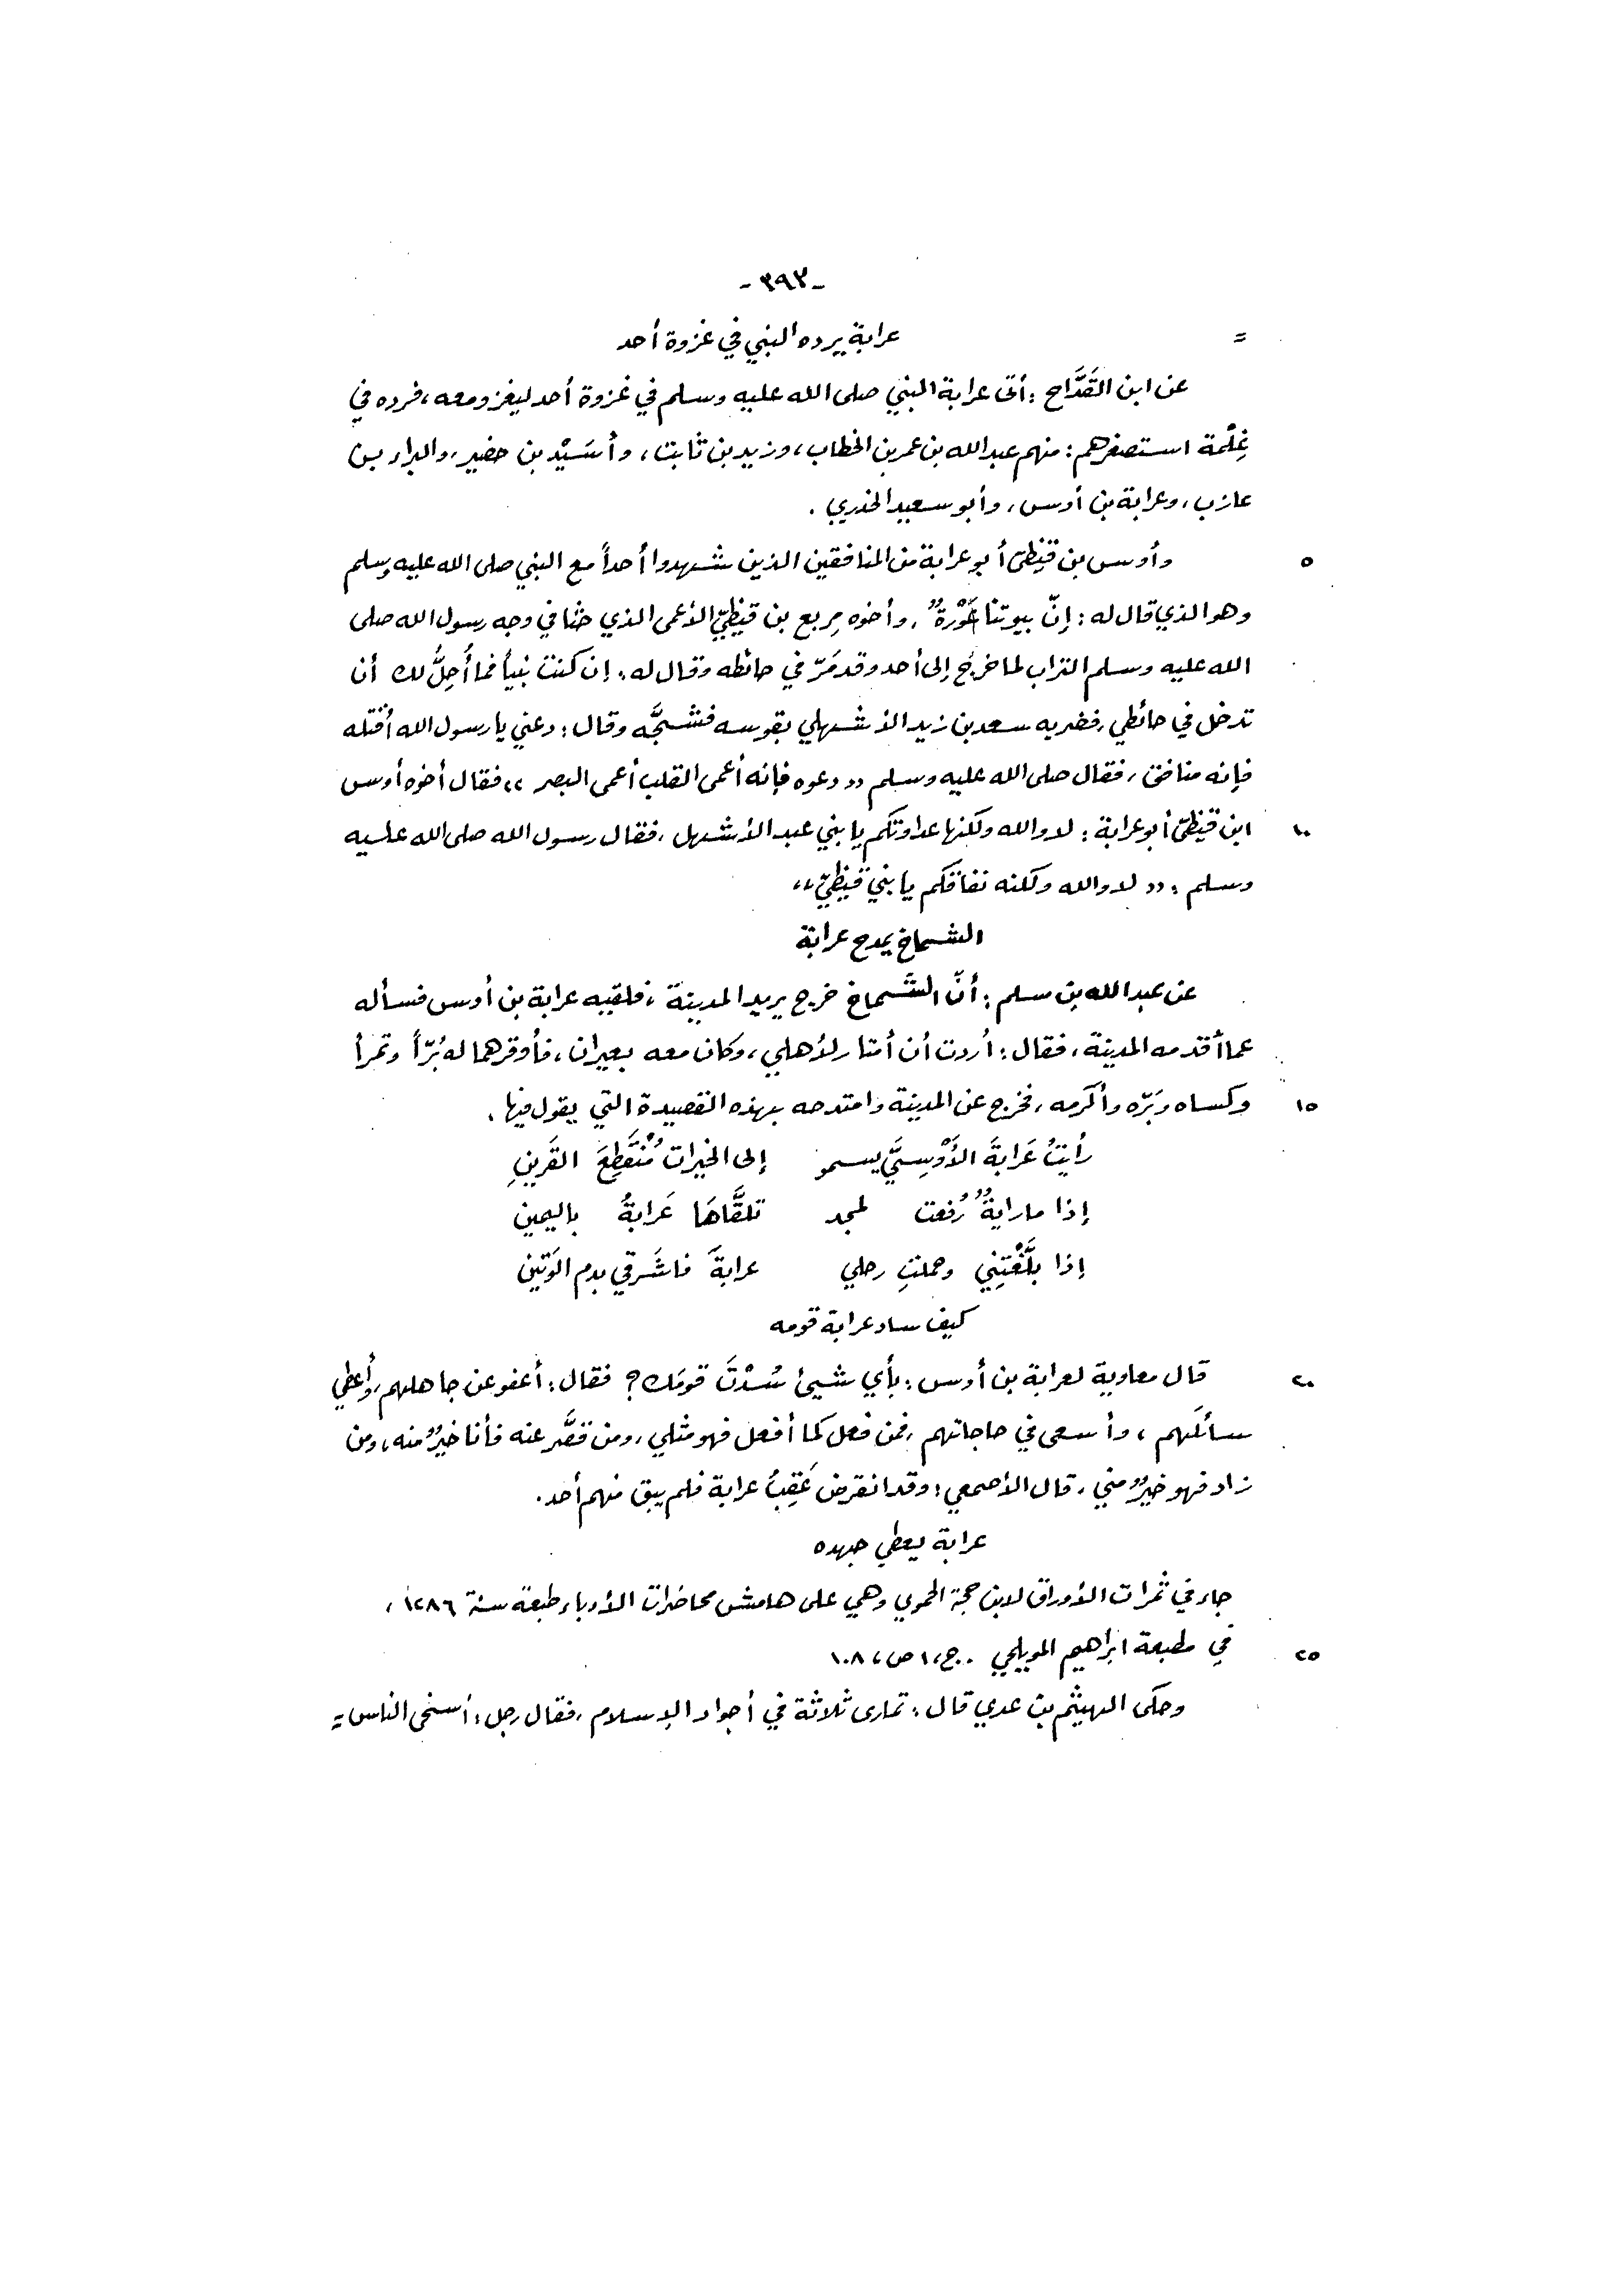 -٣٩٣-
= عرابة يرده النبي في غزوة أحد
عن ابن القَدَّاح : أتى عرابة النبي صلى الله عليه وسلم في غزوة أحد ليغزو معه ، فرده في
غِلْمة استصغرهم : منهم عبدالله بن عمر بن الخطاب ، وزيد بن ثابت ، وأُسَيْد بن حضير ، والبراء بن
عازب ، وعرابة بن أوس ، وأبو سعيد الخدري .
٥ وأوس بن قيظيّ أبو عرابة من المنافقين الذين شهدوا أحداً مع النبي صلى الله عليه وسلم
وهو الذي قال له : إنّ بيوتنا عَوْرةٌ ، وأخوه مِربع بن قيظيّ الأعمى الذي حثا في وجه رسول الله صلى
الله عليه وسلم التراب لما خرج إلى أحد وقد مَرّ في حائطه وقال له : إن كنت نبياً فما أُحِلُّ لك أن
تدخل في حائطي ، فضربه سعد بن زيد الأشهلي بقوسه فشجَّه وقال : دعني يا رسول الله أقتله
فإنه منافق ، فقال صلى الله عليه وسلم (( دعوه فإنه أعمى القلب أعمى البصر )) فقال أخوه أوس
١٠ ابن قيظيّ أبو عرابة : لا والله ولكنها عداوتكم يا بني عبد الأشهل ، فقال رسول الله صلى الله عليه
وسلم : (( لا والله ولكنه نفاقكم يا بني قيظيّ ))
الشماخ يمدح عرابة
عن عبدالله بن سلم : أنّ الشَّماخ خرج يريد المدينة ، فلقيه عرابة بن أوس فسأله
عما أقدمه المدينة ، فقال : أردت أن أمتار لأهلي ، وكان معه بعيران ، فأوقرهما له بُرّاً وتمراً
١٥ وكساه وبَرّه وأكرمه ، فخرج عن المدينة وامتدحه بهذه القصيدة التي يقول فيها .
رأيتُ عَرابةَ الأَوْسِيَّ يسمو إلى الخيرات مُنْقَطِعَ القَرينِ
إذا ما رايةٌ رُفعت لمجد تلقَّاهَا عَرابةُ باليمين
إذا بلَّغْتِني وحملتِ رحلي عرابةَ فاشَرقي بدم الوَتين
كيف ساد عرابة قومه
٢٠ قال معاوية لعرابة بن أوس : بأي شيئ سُدْتَ قومَك ؟ فقال : أعفو عن جاهلهم ، وأُعطي
سائلَهم ، وأسعى في حاجاتهم ، فمن فعل كما أفعل فهو مثلي ، ومن قصَّر عنه فأنا خيرٌ منه ، ومن
زاد فهو خيرٌ مني ، قال الأصمعي : وقد انقرض عَقِبُ عرابة فلم يبق منهم أحد .
عرابة يعطي جهده
جاء في ثمرات الأوراق لابن حجة الحموي وهي على هامش محاضرات الأدباء طبعة سنة ١٢٨٦ ،
٢٥ في مطبعة ابراهيم المويلحي . ج،١ ص، ١٠٨
وحكى الهيثم بن عدي قال : تمارى ثلاثة في أجواد الإسلام ، فقال رجل : أسخى الناس =